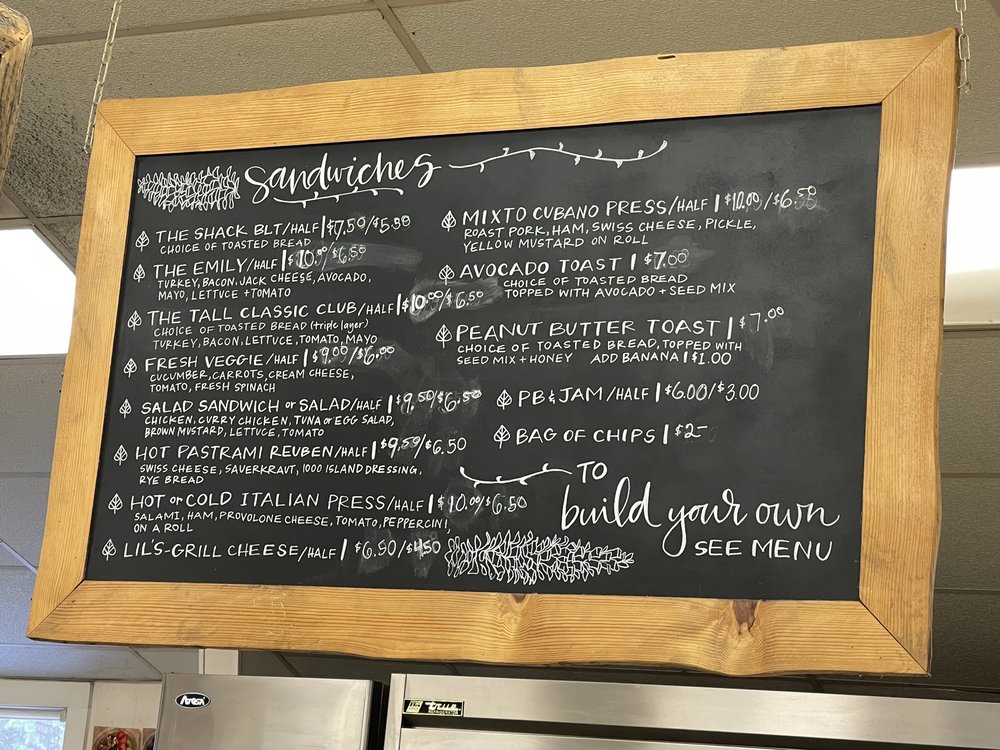 Sandwiches
THE SHACK BLT/HALF | $7.50/$5.50
CHOICE OF TOASTED BREAD
THE EMILY/HALF | $10.00/$6.50
TURKEY, BACON, JACK CHEESE, AVOCADO,
MAYO, LETTUCE + TOMATO
THE TALL CLASSIC CLUB/HALF | $10.00/$6.50
CHOICE OF TOASTED BREAD (triple layer)
TURKEY, BACON, LETTUCE, TOMATO, MAYO
FRESH VEGGIE/HALF | $9.00/$6.00
CUCUMBER, CARROTS, CREAM CHEESE,
TOMATO, FRESH SPINACH
SALAD SANDWICH or SALAD/HALF | $9.50/$6.50
CHICKEN, CURRY CHICKEN, TUNA or EGG SALAD,
BROWN MUSTARD, LETTUCE, TOMATO
HOT PASTRAMI REUBEN/HALF | $9.50/$6.50
SWISS CHEESE, SAUERKRAUT, 1000 ISLAND DRESSING,
RYE BREAD
HOT or COLD ITALIAN PRESS/HALF | $10.00/$6.50
SALAMI, HAM, PROVOLONE CHEESE, TOMATO, PEPPERCINI,
ON A ROLL
LIL'S-GRILL CHEESE/HALF | $6.50/$4.50
MIXTO CUBANO PRESS/HALF | $10.00/$6.50
ROAST PORK, HAM, SWISS CHEESE, PICKLE,
YELLOW MUSTARD ON ROLL
AVOCADO TOAST | $7.00
CHOICE OF TOASTED BREAD
TOPPED WITH AVOCADO + SEED MIX
PEANUT BUTTER TOAST | $7.00
CHOICE OF TOASTED BREAD, TOPPED WITH
SEED MIX + HONEY ADD BANANA | $1.00
PB & JAM/HALF | $6.00/$3.00
BAG OF CHIPS | $2-
TO
build your own
SEE MENU
Atosa
true
REFRIGERATION